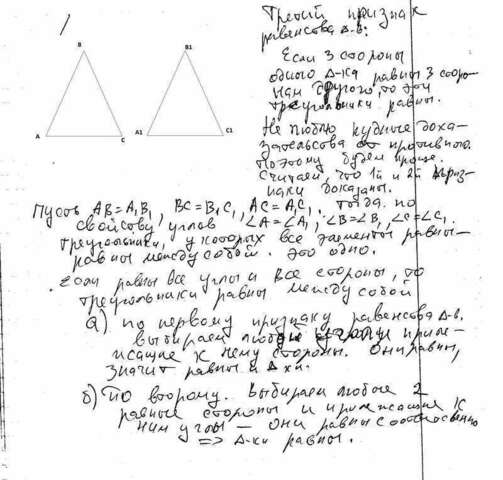 Третий признак
равенства Δ-в:
Если 3 стороны
одного Δ-ка равны 3 сторо-
нам другого, то эти
треугольники равны.
Не люблю нудные дока-
зательсва от противного.
Поэтому будем проще.
Считаем, что 1й и 2й призн-
наки доказаны.
B
B1
A
C
A1
C1
Пусть AB=A₁B₁, BC=B₁C₁, AC=A₁C₁. Тогда по
свойству углов ∠A=∠A₁, ∠B=∠B₁, ∠C=∠C₁.
треугольники, у которых все элементы равны-
равны между собой. Это одно.
Если равны все углы и все стороны, то
треугольники равны между собой
а) по первому признаку равенства Δ-в.
выбираем любой и приле-
жащие к нему стороны. Они равны,
значит равны и Δ-ки.
б) По второму. Выбираем любые 2
равные стороны и прилежащие к
ним углы — они равны соответсвенно
=> Δ-ки равны.